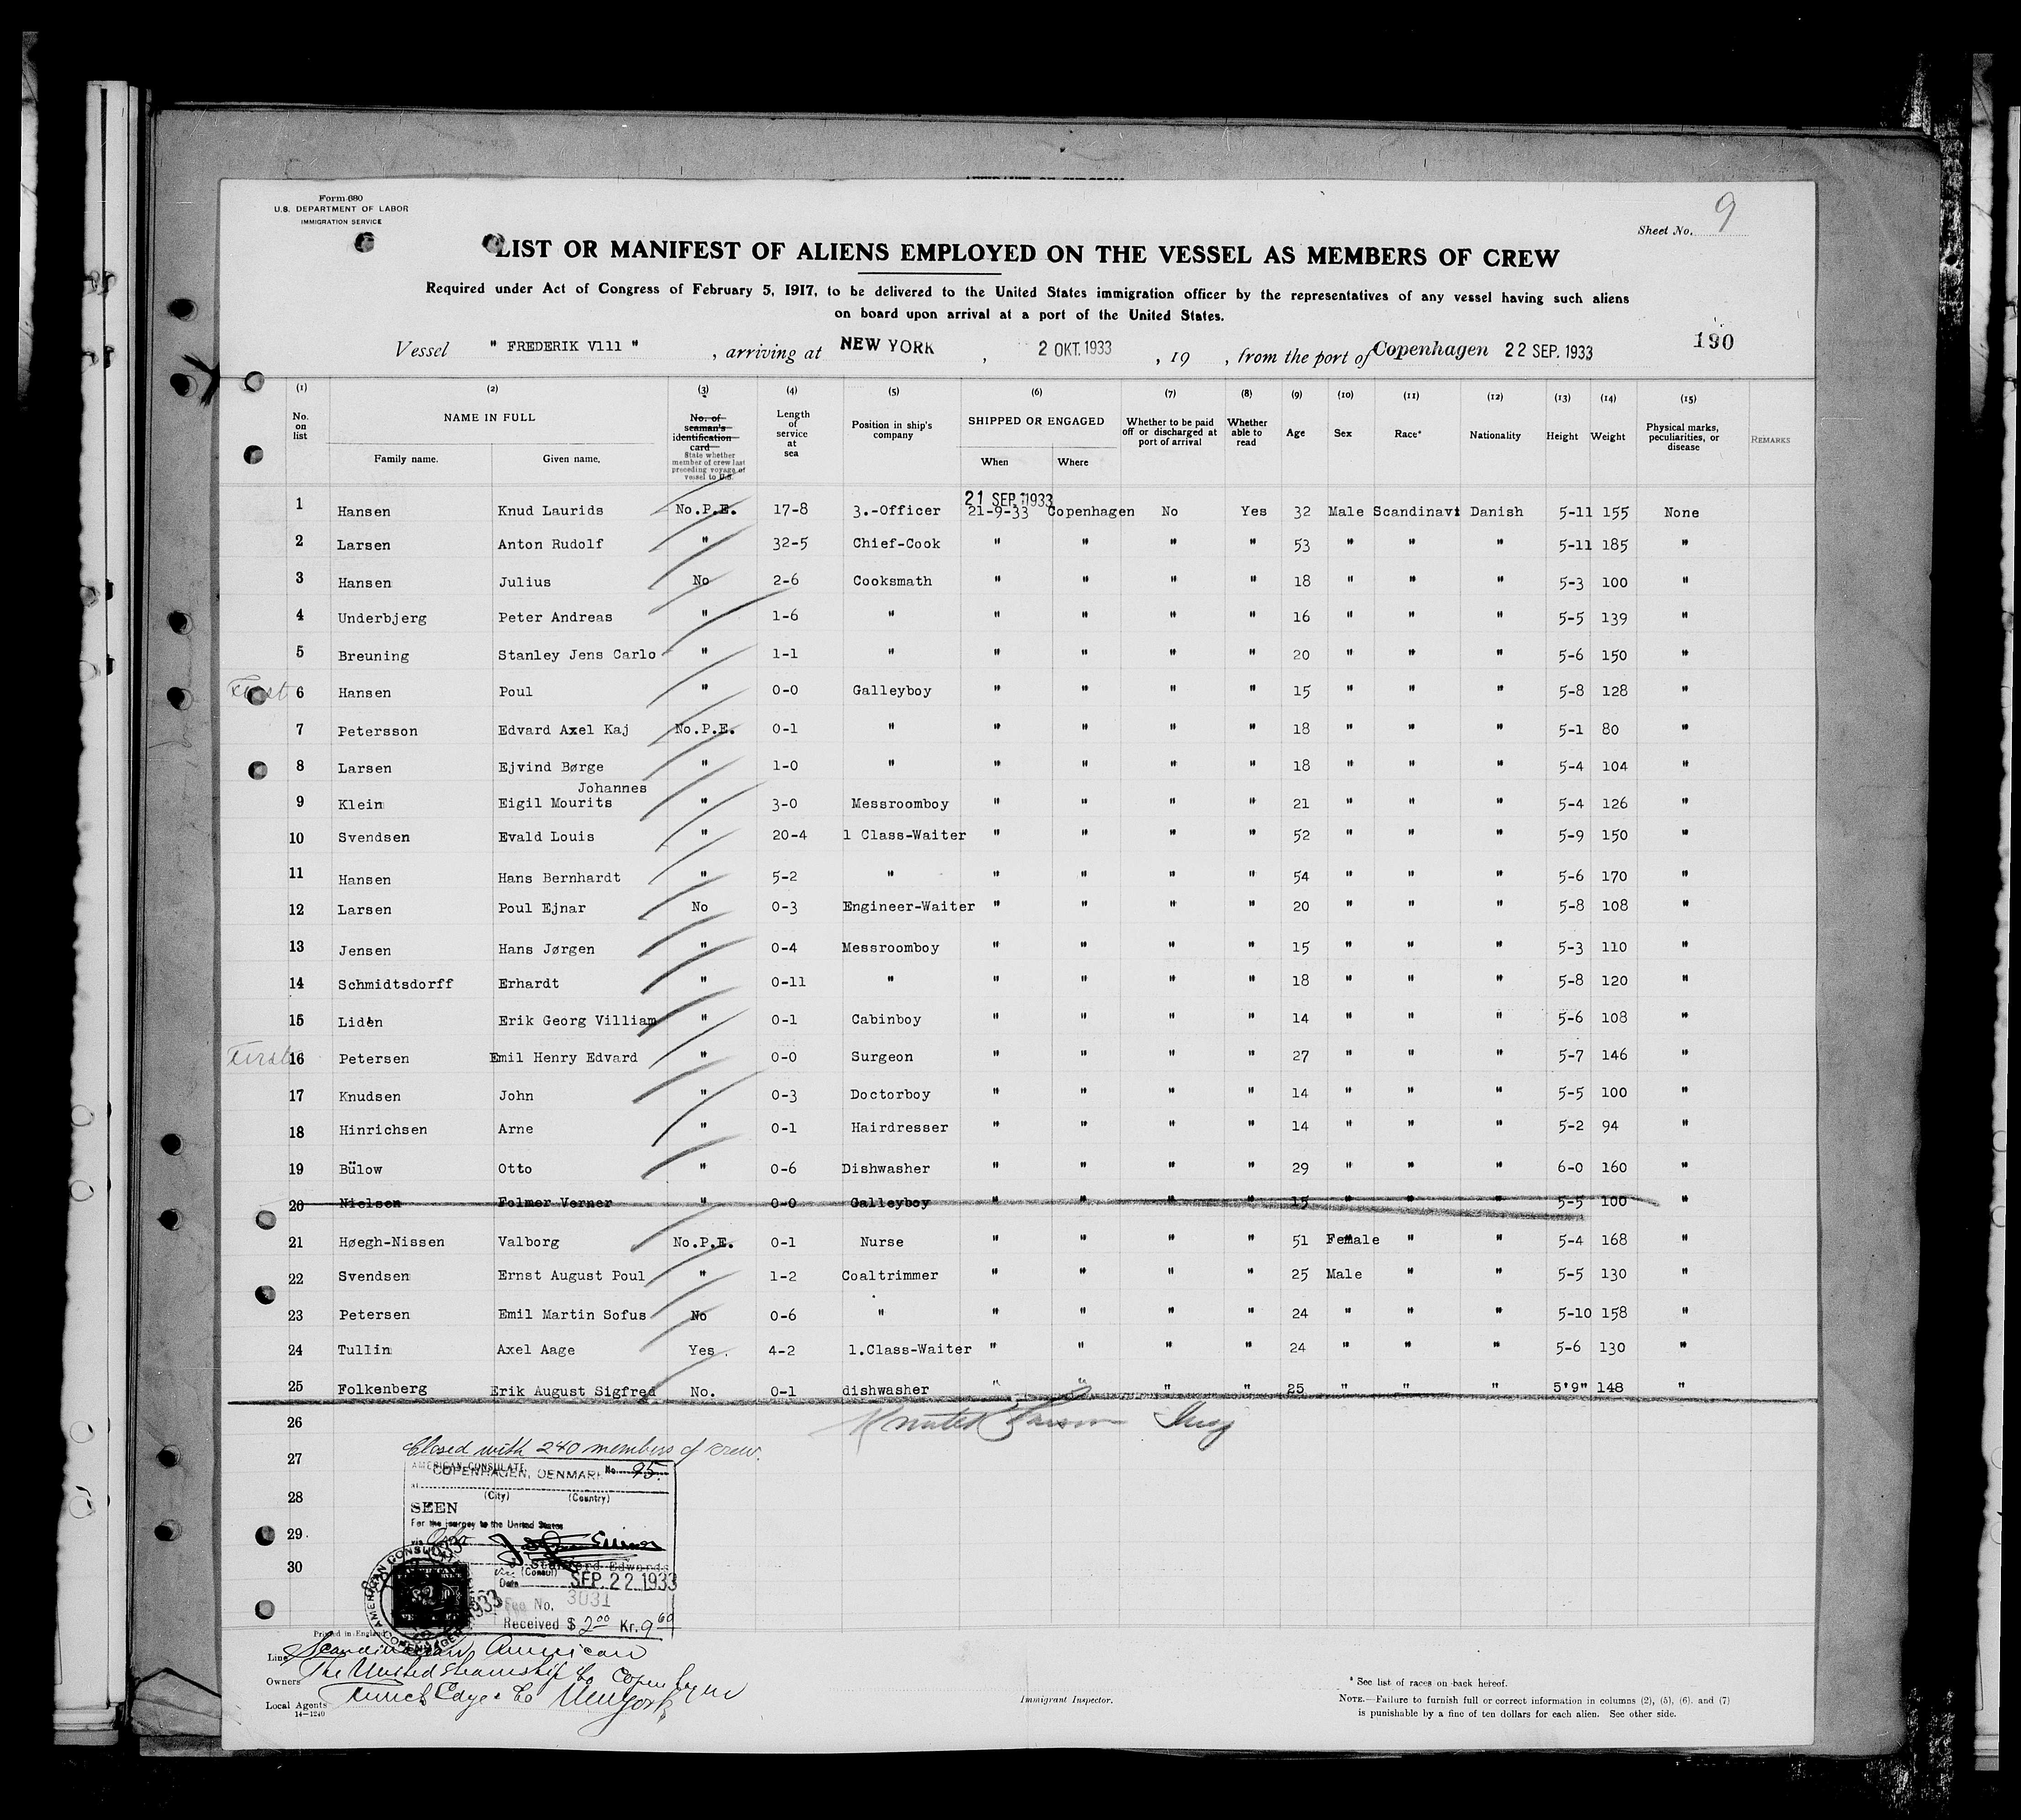 Form 680
U.S. DEPARTMENT OF LABOR
IMMIGRATION SERVICE
Sheet No. 9
LIST OR MANIFEST OF ALIENS EMPLOYED ON THE VESSEL AS MEMBERS OF CREW
Required under Act of Congress of February 5, 1917, to be delivered to the United States immigration officer by the representatives of any vessel having such aliens
on board upon arrival at a port of the United States.
Vessel " FREDERIK V111 " , arriving at NEW YORK , 2 OKT. 1933 , 19 , from the port of Copenhagen 22 SEP. 1933
190
(1) (2) (3) (4) (5) (6) (7) (8) (9) (10) (11) (12) (13) (14) (15)
No. on list
NAME IN FULL
Family name. Given name.
No. of seaman's identification card
State whether member of crew last preceding voyage of vessel to U.S.
Length of service at sea
Position in ship's company
SHIPPED OR ENGAGED
When Where
Whether to be paid off or discharged at port of arrival
Whether able to read
Age
Sex
Race*
Nationality
Height
Weight
Physical marks, peculiarities, or disease
REMARKS
21 SEP. 1933
1 Hansen Knud Laurids No.P.E. 17-8 3.-Officer 21-9-33 Copenhagen No Yes 32 Male Scandinavi Danish 5-11 155 None
2 Larsen Anton Rudolf " 32-5 Chief-Cook " " " " 53 " " " 5-11 185 "
3 Hansen Julius No 2-6 Cooksmath " " " " 18 " " " 5-3 100 "
4 Underbjerg Peter Andreas " 1-6 " " " " " 16 " " " 5-5 139 "
5 Breuning Stanley Jens Carlo " 1-1 " " " " " 20 " " " 5-6 150 "
First 6 Hansen Poul " 0-0 Galleyboy " " " " 15 " " " 5-8 128 "
7 Petersson Edvard Axel Kaj No.P.E. 0-1 " " " " " 18 " " " 5-1 80 "
8 Larsen Ejvind Børge " 1-0 " " " " " 18 " " " 5-4 104 "
Johannes
9 Klein Eigil Mourits " 3-0 Messroomboy " " " " 21 " " " 5-4 126 "
10 Svendsen Evald Louis " 20-4 1 Class-Waiter " " " " 52 " " " 5-9 150 "
11 Hansen Hans Bernhardt " 5-2 " " " " " 54 " " " 5-6 170 "
12 Larsen Poul Ejnar No 0-3 Engineer-Waiter " " " " 20 " " " 5-8 108 "
13 Jensen Hans Jørgen " 0-4 Messroomboy " " " " 15 " " " 5-3 110 "
14 Schmidtsdorff Erhardt " 0-11 " " " " " 18 " " " 5-8 120 "
15 Lidén Erik Georg Villiam " 0-1 Cabinboy " " " " 14 " " " 5-6 108 "
First 16 Petersen Emil Henry Edvard " 0-0 Surgeon " " " " 27 " " " 5-7 146 "
17 Knudsen John " 0-3 Doctorboy " " " " 14 " " " 5-5 100 "
18 Hinrichsen Arne " 0-1 Hairdresser " " " " 14 " " " 5-2 94 "
19 Bülow Otto " 0-6 Dishwasher " " " " 29 " " " 6-0 160 "
20 Nielsen Folmer Verner " 0-0 Galleyboy " " " " 15 " " " 5-5 100 "
21 Høegh-Nissen Valborg No.P.E. 0-1 Nurse " " " " 51 Female " " 5-4 168 "
22 Svendsen Ernst August Poul " 1-2 Coaltrimmer " " " " 25 Male " " 5-5 130 "
23 Petersen Emil Martin Sofus No 0-6 " " " " " 24 " " " 5-10 158 "
24 Tullin Axel Aage Yes 4-2 1.Class-Waiter " " " " 24 " " " 5-6 130 "
25 Folkenberg Erik August Sigfred No. 0-1 dishwasher " " " " 25 " " " 5'9" 148 "
26
27
28
29
30
Closed with 240 members of crew.
AMERICAN CONSULATE
COPENHAGEN, DENMARK No. 95.
at
(City) (Country)
SEEN
For the journey to the United States
via Oslo
Edwards
(Consul)
Date SEP. 22. 1933
Fee No. 3031
Received $ 2.00 Kr. 9.60
AMERICAN CONSULATE
Printed in England
Line Scandinavian American
Owners The United Steamship Co Copenhagen
Local Agents Funch Edye & Co New York
14—1240
Immigrant Inspector.
* See list of races on back hereof.
NOTE.—Failure to furnish full or correct information in columns (2), (5), (6), and (7)
is punishable by a fine of ten dollars for each alien. See other side.